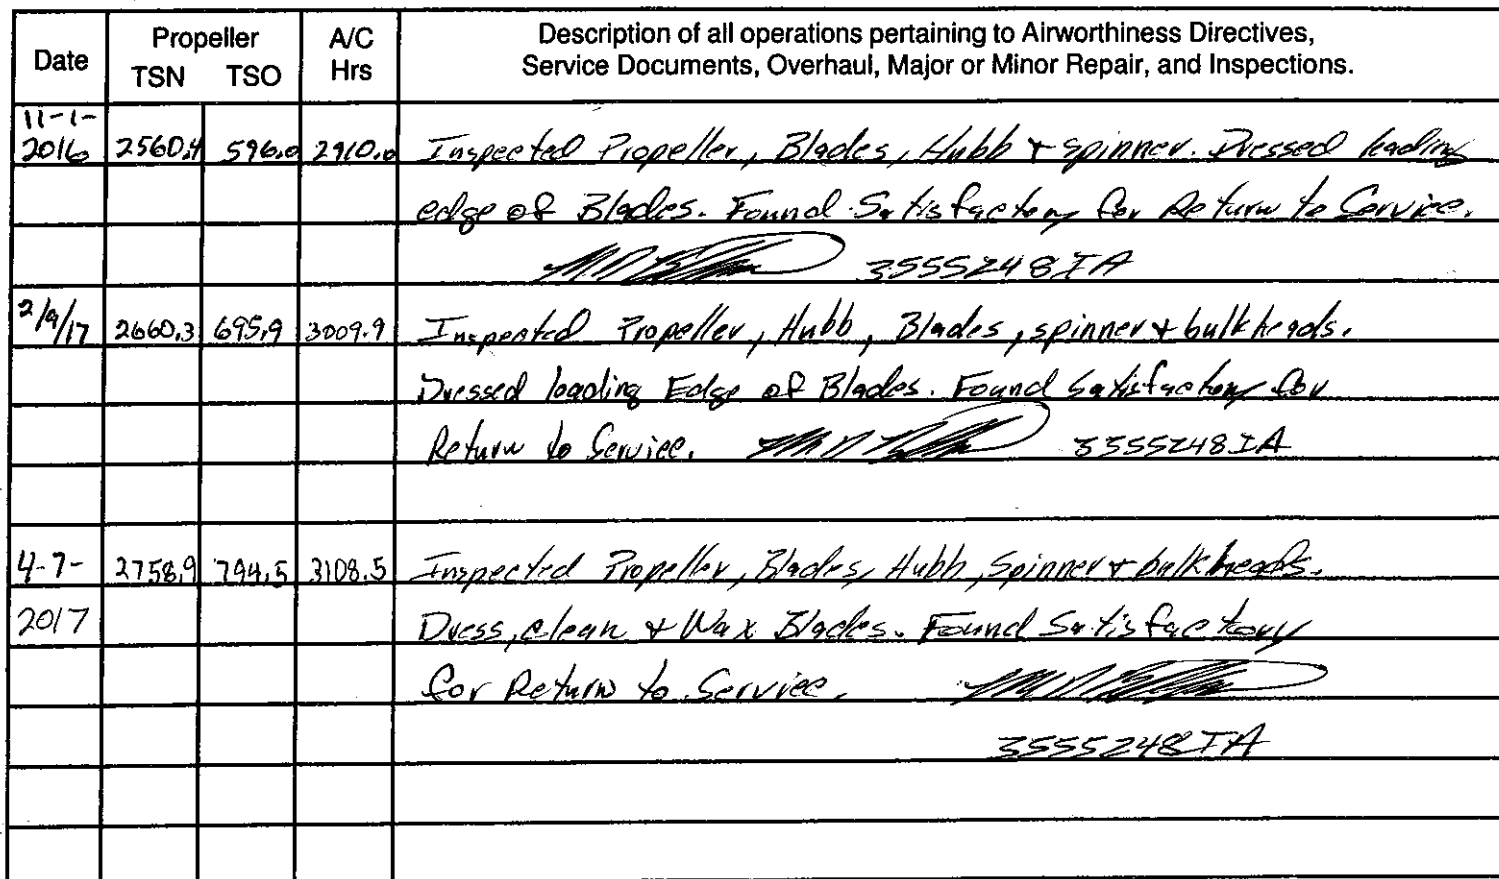 Date Propeller A/C Description of all operations pertaining to Airworthiness Directives,
TSN TSO Hrs Service Documents, Overhaul, Major or Minor Repair, and Inspections.
11-1-
2016 2560.4 596.0 2910.0 Inspected Propeller, Blades, Hubb + spinner. Dressed leading
edge of Blades. Found Satisfactory for Return to Service.
3555248IA
2/9/17 2660.3 695.9 3009.9 Inspected Propeller, Hubb, Blades, spinner + bulkheads.
Dressed leading Edge of Blades. Found Satisfactory for
Return to Service. 3555248IA
4-7- 2758.9 794.5 3108.5 Inspected Propeller, Blades, Hubb, Spinner + bulkheads.
2017 Dress, clean + Wax Blades. Found Satisfactory
for Return to Service.
3555248IA